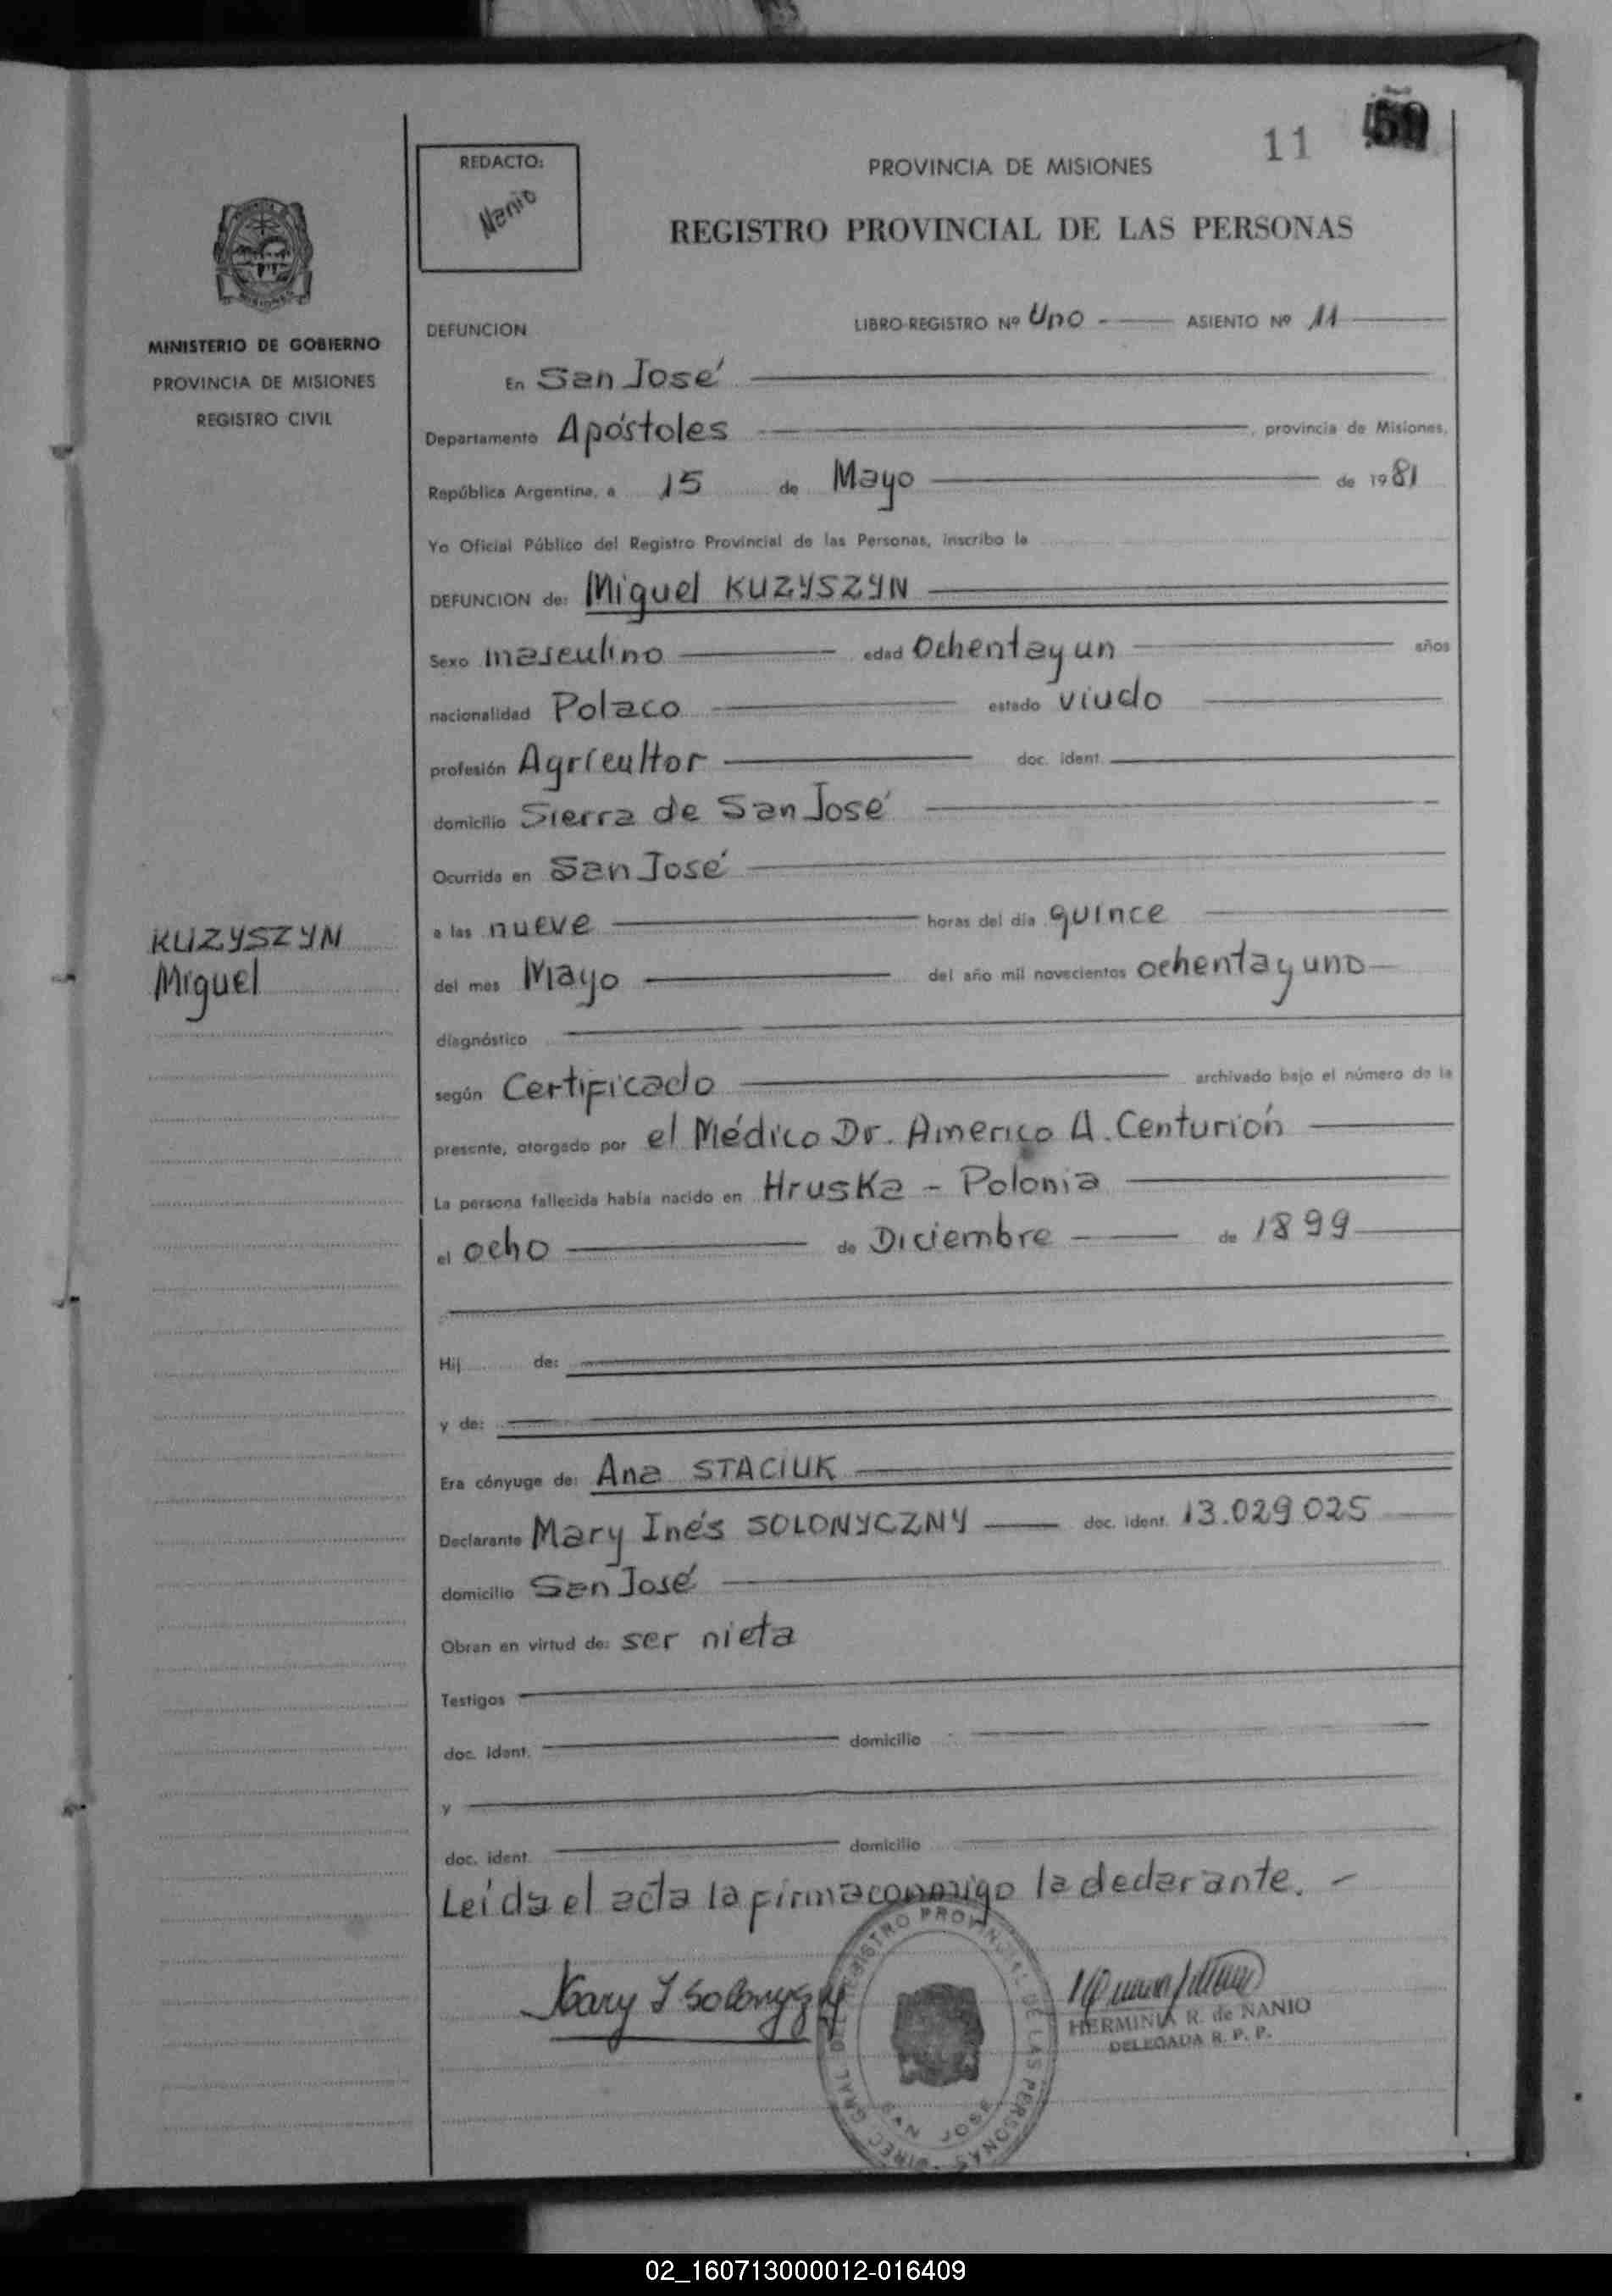 11
REDACTO:
Nanio
PROVINCIA DE MISIONES
REGISTRO PROVINCIAL DE LAS PERSONAS
MINISTERIO DE GOBIERNO
PROVINCIA DE MISIONES
REGISTRO CIVIL
DEFUNCION LIBRO-REGISTRO Nº Uno - ASIENTO Nº 11
En San José
Departamento Apóstoles, provincia de Misiones,
República Argentina, a 15 de Mayo de 1981
Yo Oficial Público del Registro Provincial de las Personas, inscribo la
DEFUNCION de: Miguel KUZYSZYN
Sexo masculino edad Ochentayun años
nacionalidad Polaco estado viudo
profesión Agricultor doc. ident.
domicilio Sierra de San José
Ocurrida en San José
KUZYSZYN
Miguel
a las nueve horas del día quince
del mes Mayo del año mil novecientos ochentayuno
diagnóstico
según Certificado archivado bajo el número de la
presente, otorgado por el Médico Dr. Americo A. Centurión
La persona fallecida había nacido en Hruska - Polonia
el ocho de Diciembre de 1899
Hij de:
y de:
Era cónyuge de: Ana STACIUK
Declarante Mary Inés SOLONYCZNY doc. ident. 13.029025
domicilio San José
Obran en virtud de: ser nieta
Testigos
doc. ident. domicilio
y
doc. ident. domicilio
Leída el acta la firma conmigo la declarante. -
Mary I Solonyczny
HERMINIA R. de NANIO
DELEGADA R. P. P.
DIREC. GRAL. DEL REGISTRO PROVINCIAL DE LAS PERSONAS
SAN JOSE
02_160713000012-016409